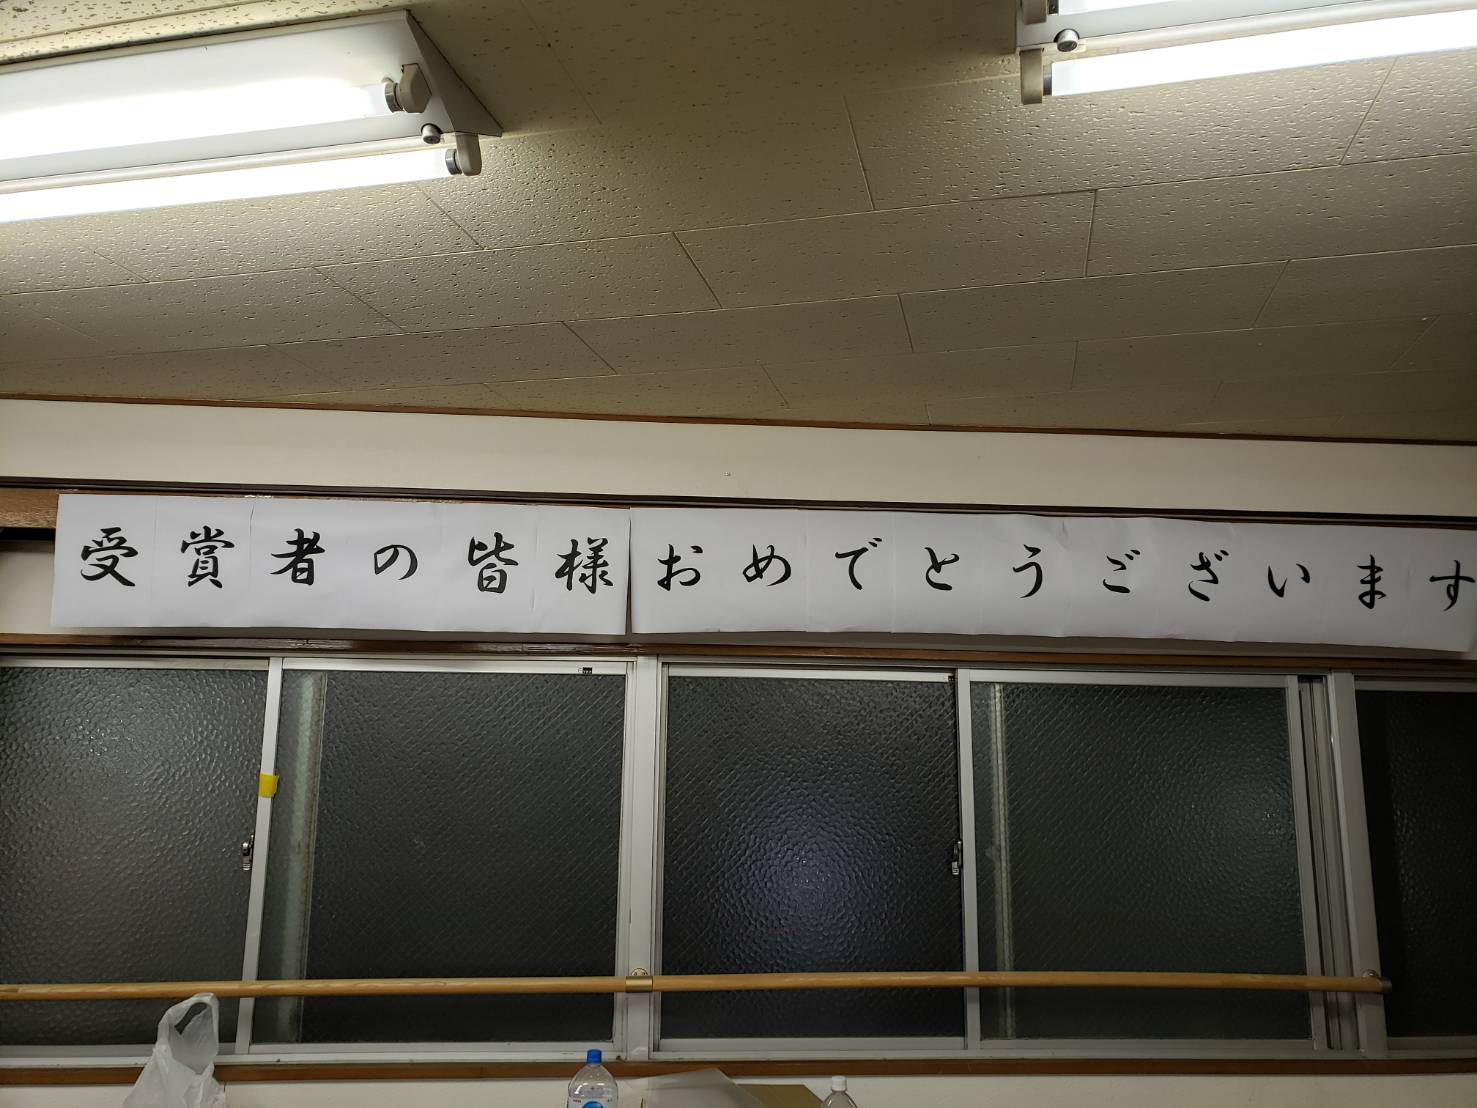 受賞者の皆様おめでとうございます